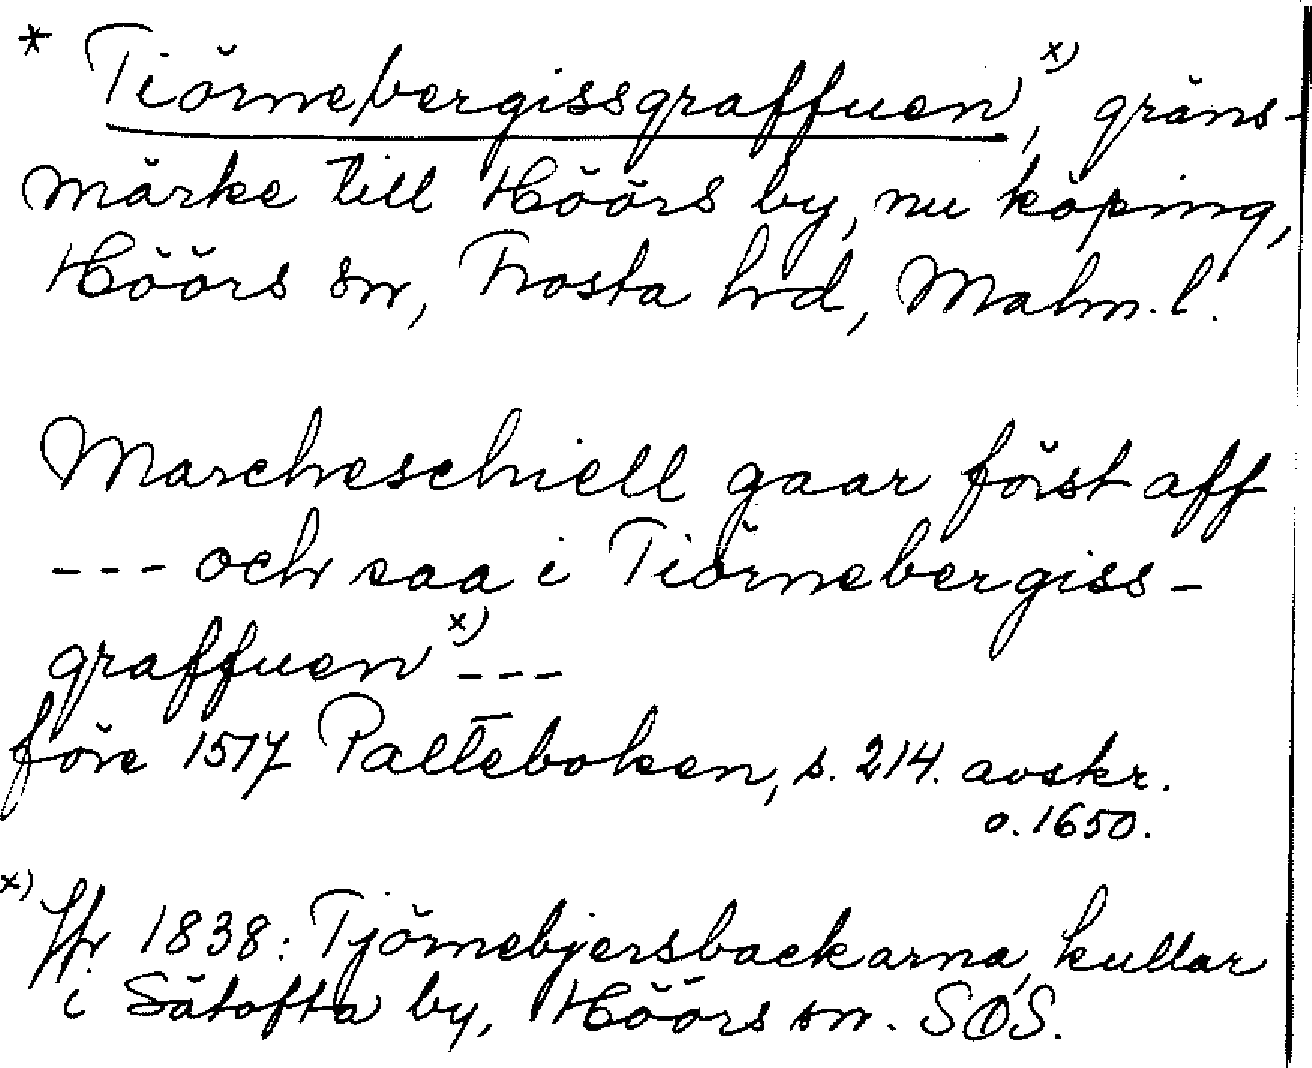 * Tiörnebergissgraffuen,ˣ⁾ gräns-
märke till Höörs by, nu köping,
Höörs sn, Frosta hrd, Malm. l.
Marcheschiell gaar först aff
--- och saa i Tiörnebergiss-
graffuenˣ⁾ ---
före 1517 Palteboken, s. 214. avskr.
o. 1650.
ˣ⁾ Jfr 1838: Tjörnebjersbackarna, kullar
i Sätofta by, Höörs sn. SOS.